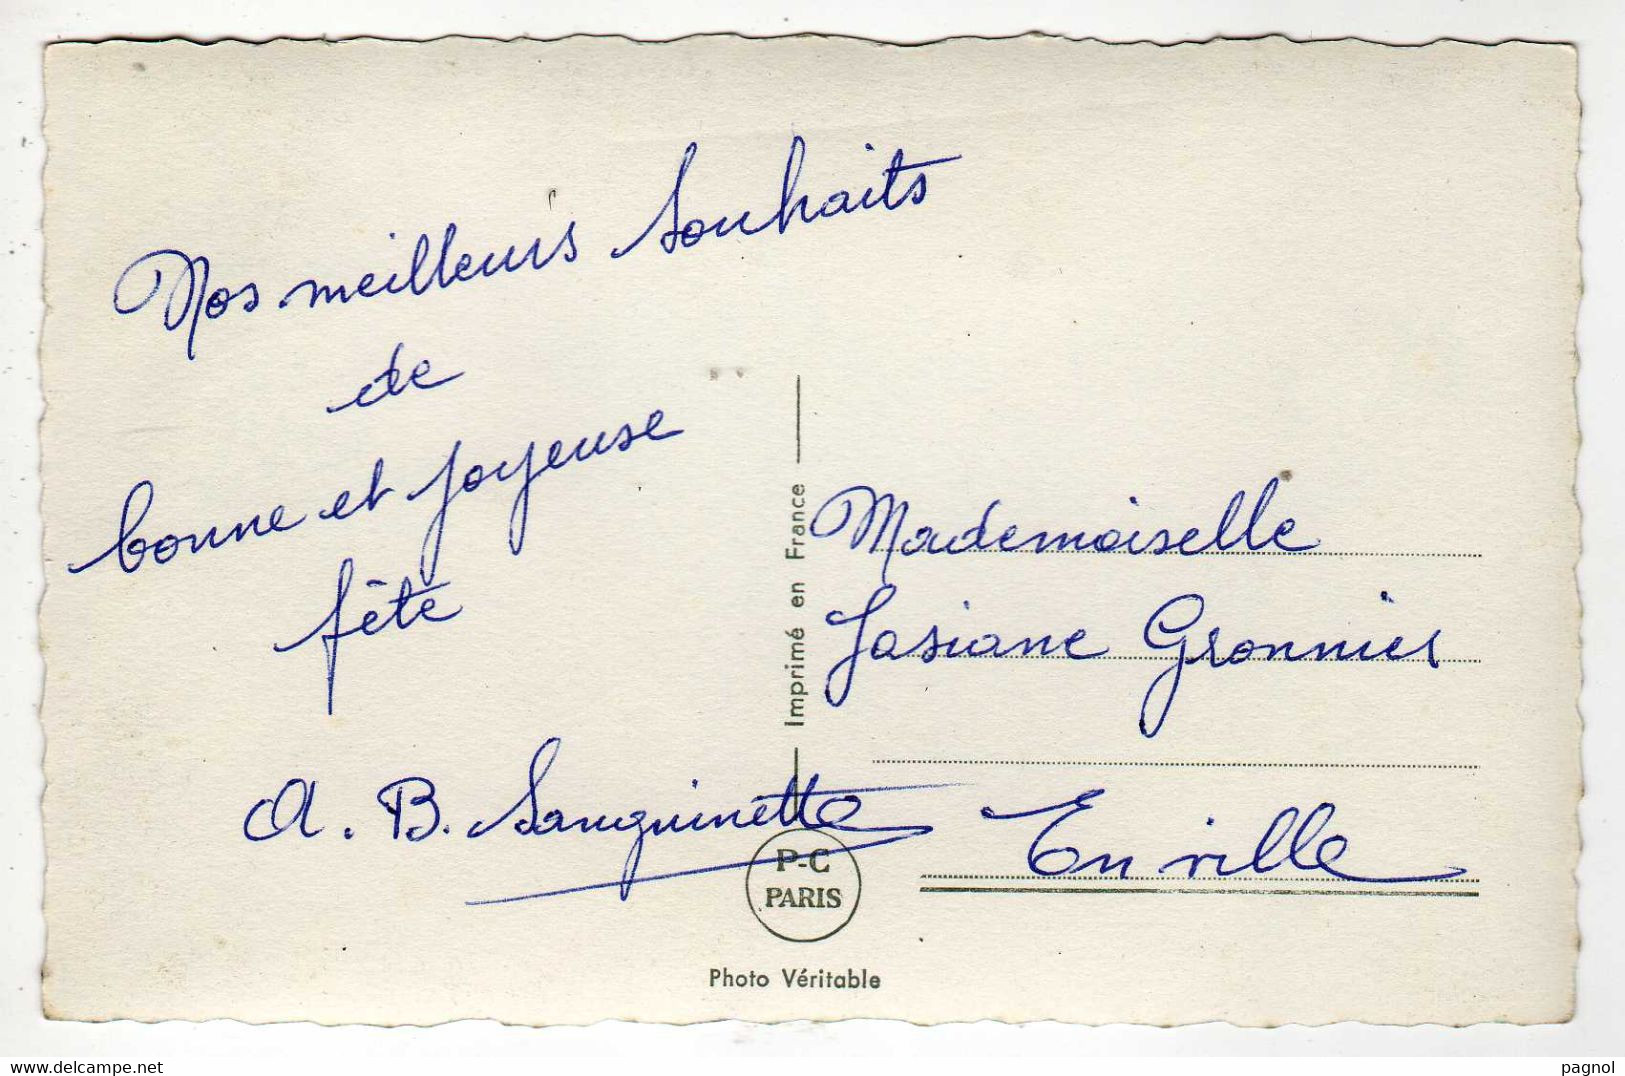 Nos meilleurs souhaits
de
bonne et joyeuse
fête
A. B. Sanguinette
Imprimé en France
Mademoiselle
Josiane Gronnier
En ville
P-C
PARIS
Photo Véritable
https://www.delcampe.net
pagnol